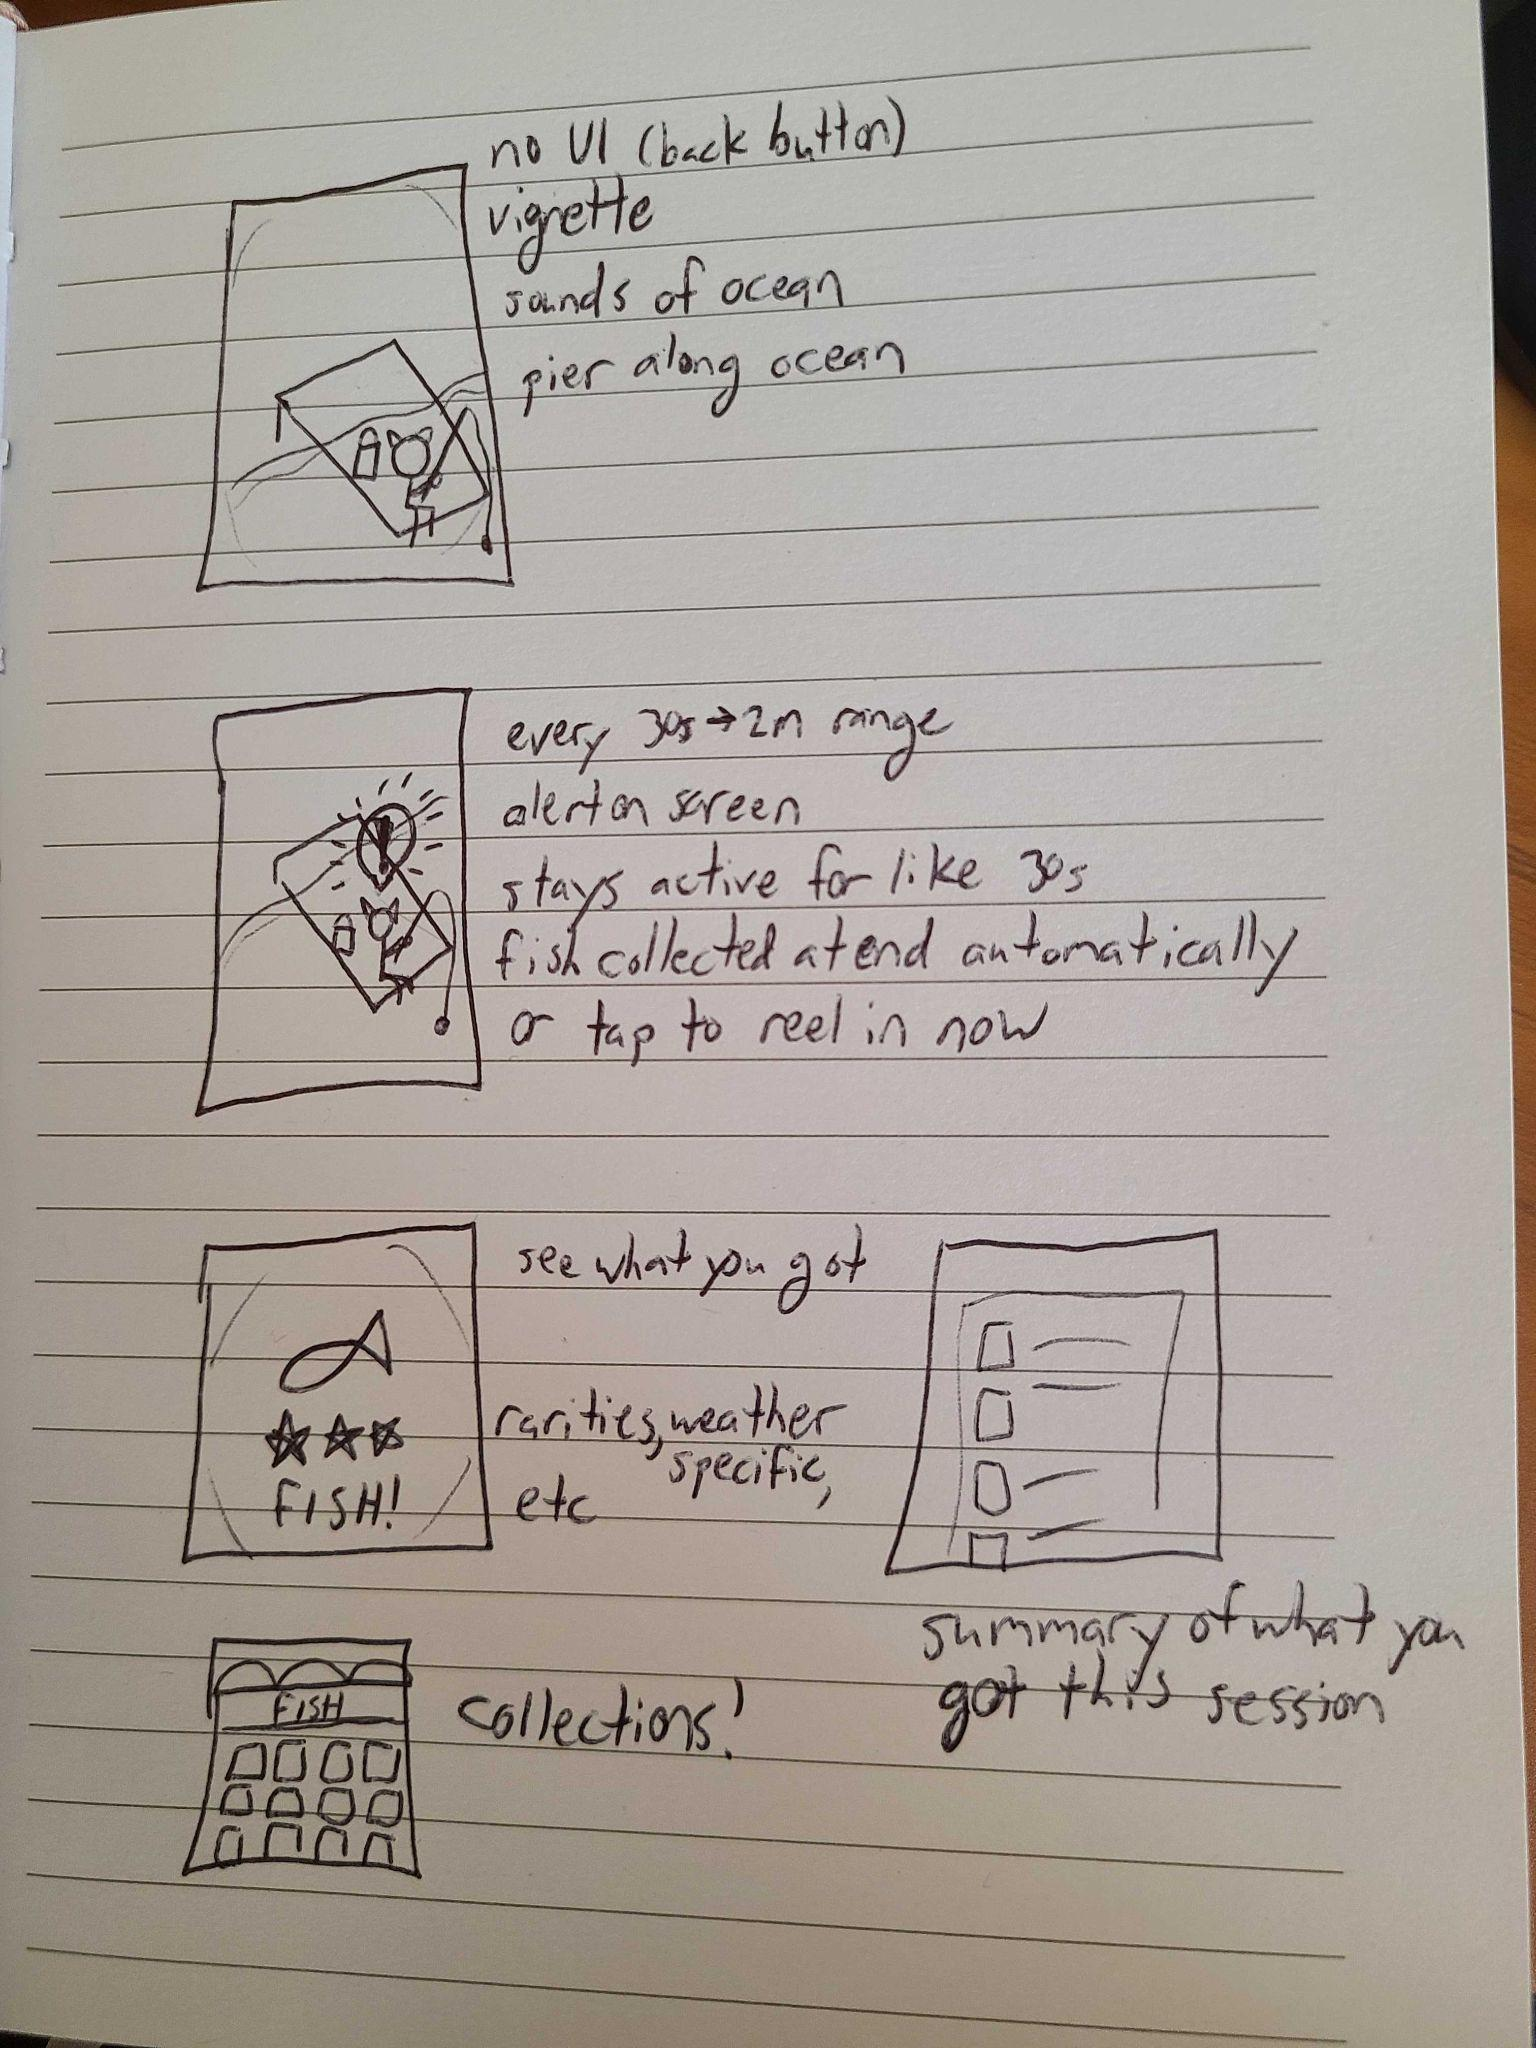 no UI (back button)
vignette
sounds of ocean
pier along ocean
every 30s → 2m range
alert on screen
stays active for like 30s
fish collected at end automatically
or tap to reel in now
see what you got
rarities, weather
specific,
etc
FISH!
summary of what you
got this session
FISH
collections!